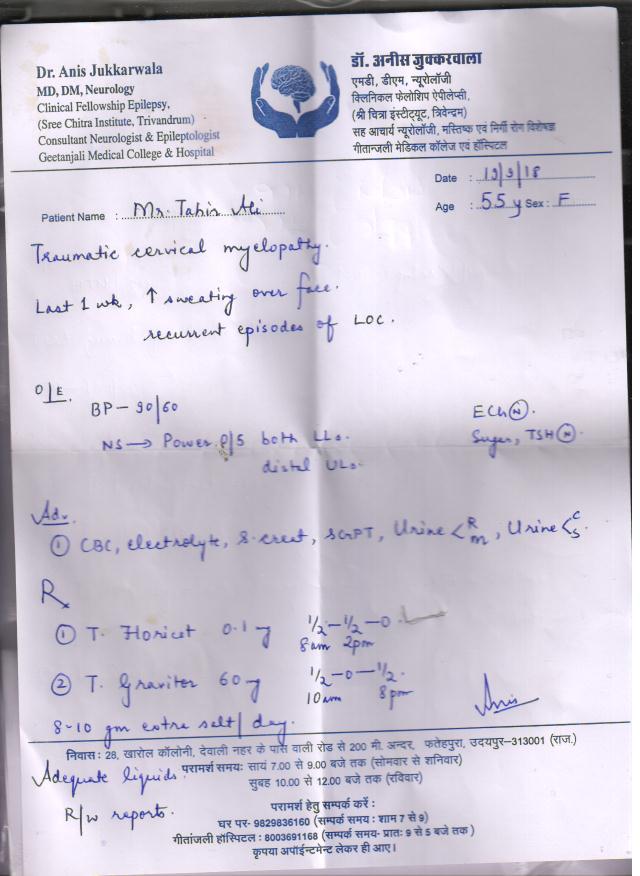 Dr. Anis Jukkarwala
MD, DM, Neurology
Clinical Fellowship Epilepsy,
(Sree Chitra Institute, Trivandrum)
Consultant Neurologist & Epileptologist
Geetanjali Medical College & Hospital
डॉ. अनीस जुक्करवाला
एमडी, डीएम, न्यूरोलॉजी
क्लिनिकल फेलोशिप ऐपीलेप्सी,
(श्री चित्रा इंस्टीट्यूट, त्रिवेन्द्रम)
सह आचार्य न्यूरोलॉजी, मस्तिष्क एवं मिर्गी रोग विशेषज्ञ
गीतान्जली मेडिकल कॉलेज एवं हॉस्पिटल
Date : 19/9/18
Patient Name : Mr. Tahir Ali
Age : 55 y Sex : F
Traumatic cervical myelopathy.
Last 1 wk, ↑ sweating over face.
recurrent episodes of LOC.
O/E.
BP - 90/60
ECG (N).
NS → Power 0/5 both LLs.
Sugar, TSH (N)
distal ULs.
Adv.
① CBC, electrolyte, S. creat, SGPT, Urine < R M, Urine < C S.
Rx
① T. Floricot 0.1 g 1/2-1/2-0
8am 2pm
② T. Gravitor 60 g 1/2-0-1/2.
10am 8pm
Anis
8-10 gm extra salt/day.
निवास : 28, खारोल कॉलोनी, देवाली नहर के पास वाली रोड से 200 मी. अन्दर, फतेहपुरा, उदयपुर-313001 (राज.)
Adequate liquids.
परामर्श समय: सायं 7.00 से 9.00 बजे तक (सोमवार से शनिवार)
सुबह 10.00 से 12.00 बजे तक (रविवार)
R/w reports.
परामर्श हेतु सम्पर्क करें :
घर पर- 9829836160 (सम्पर्क समय : शाम 7 से 9)
गीतांजली हॉस्पिटल : 8003691168 (सम्पर्क समय- प्रातः 9 से 5 बजे तक )
कृपया अपॉईन्टमेन्ट लेकर ही आए।